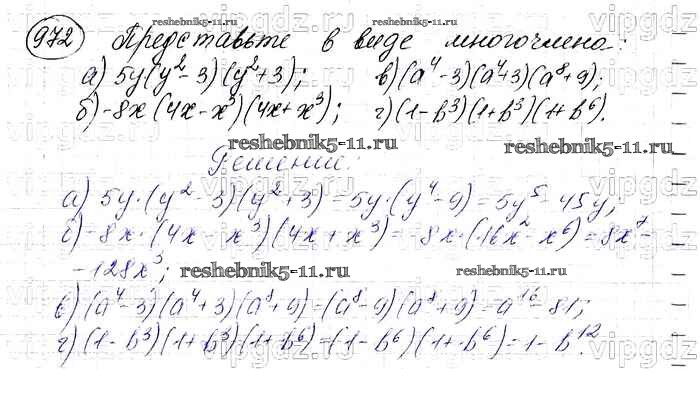 reshebnik5-11.ru reshebnik5-11.ru
972 Представьте в виде многочлена:
а) 5y(y²-3)(y²+3); в)(a⁴-3)(a⁴+3)(a⁸+9);
б)-8x(4x-x³)(4x+x³); г)(1-b³)(1+b³)(1+b⁶).
reshebnik5-11.ru reshebnik5-11.ru
Решение:
а) 5y·(y²-3)(y²+3)=5y·(y⁴-9)=5y⁵-45y;
б)-8x·(4x-x³)(4x+x³)=-8x·(16x²-x⁶)=8x⁷-
-128x³;
reshebnik5-11.ru reshebnik5-11.ru
в)(a⁴-3)(a⁴+3)(a⁸+9)=(a⁸-9)(a⁸+9)=a¹⁶-81;
г)(1-b³)(1+b³)(1+b⁶)=(1-b⁶)(1+b⁶)=1-b¹².